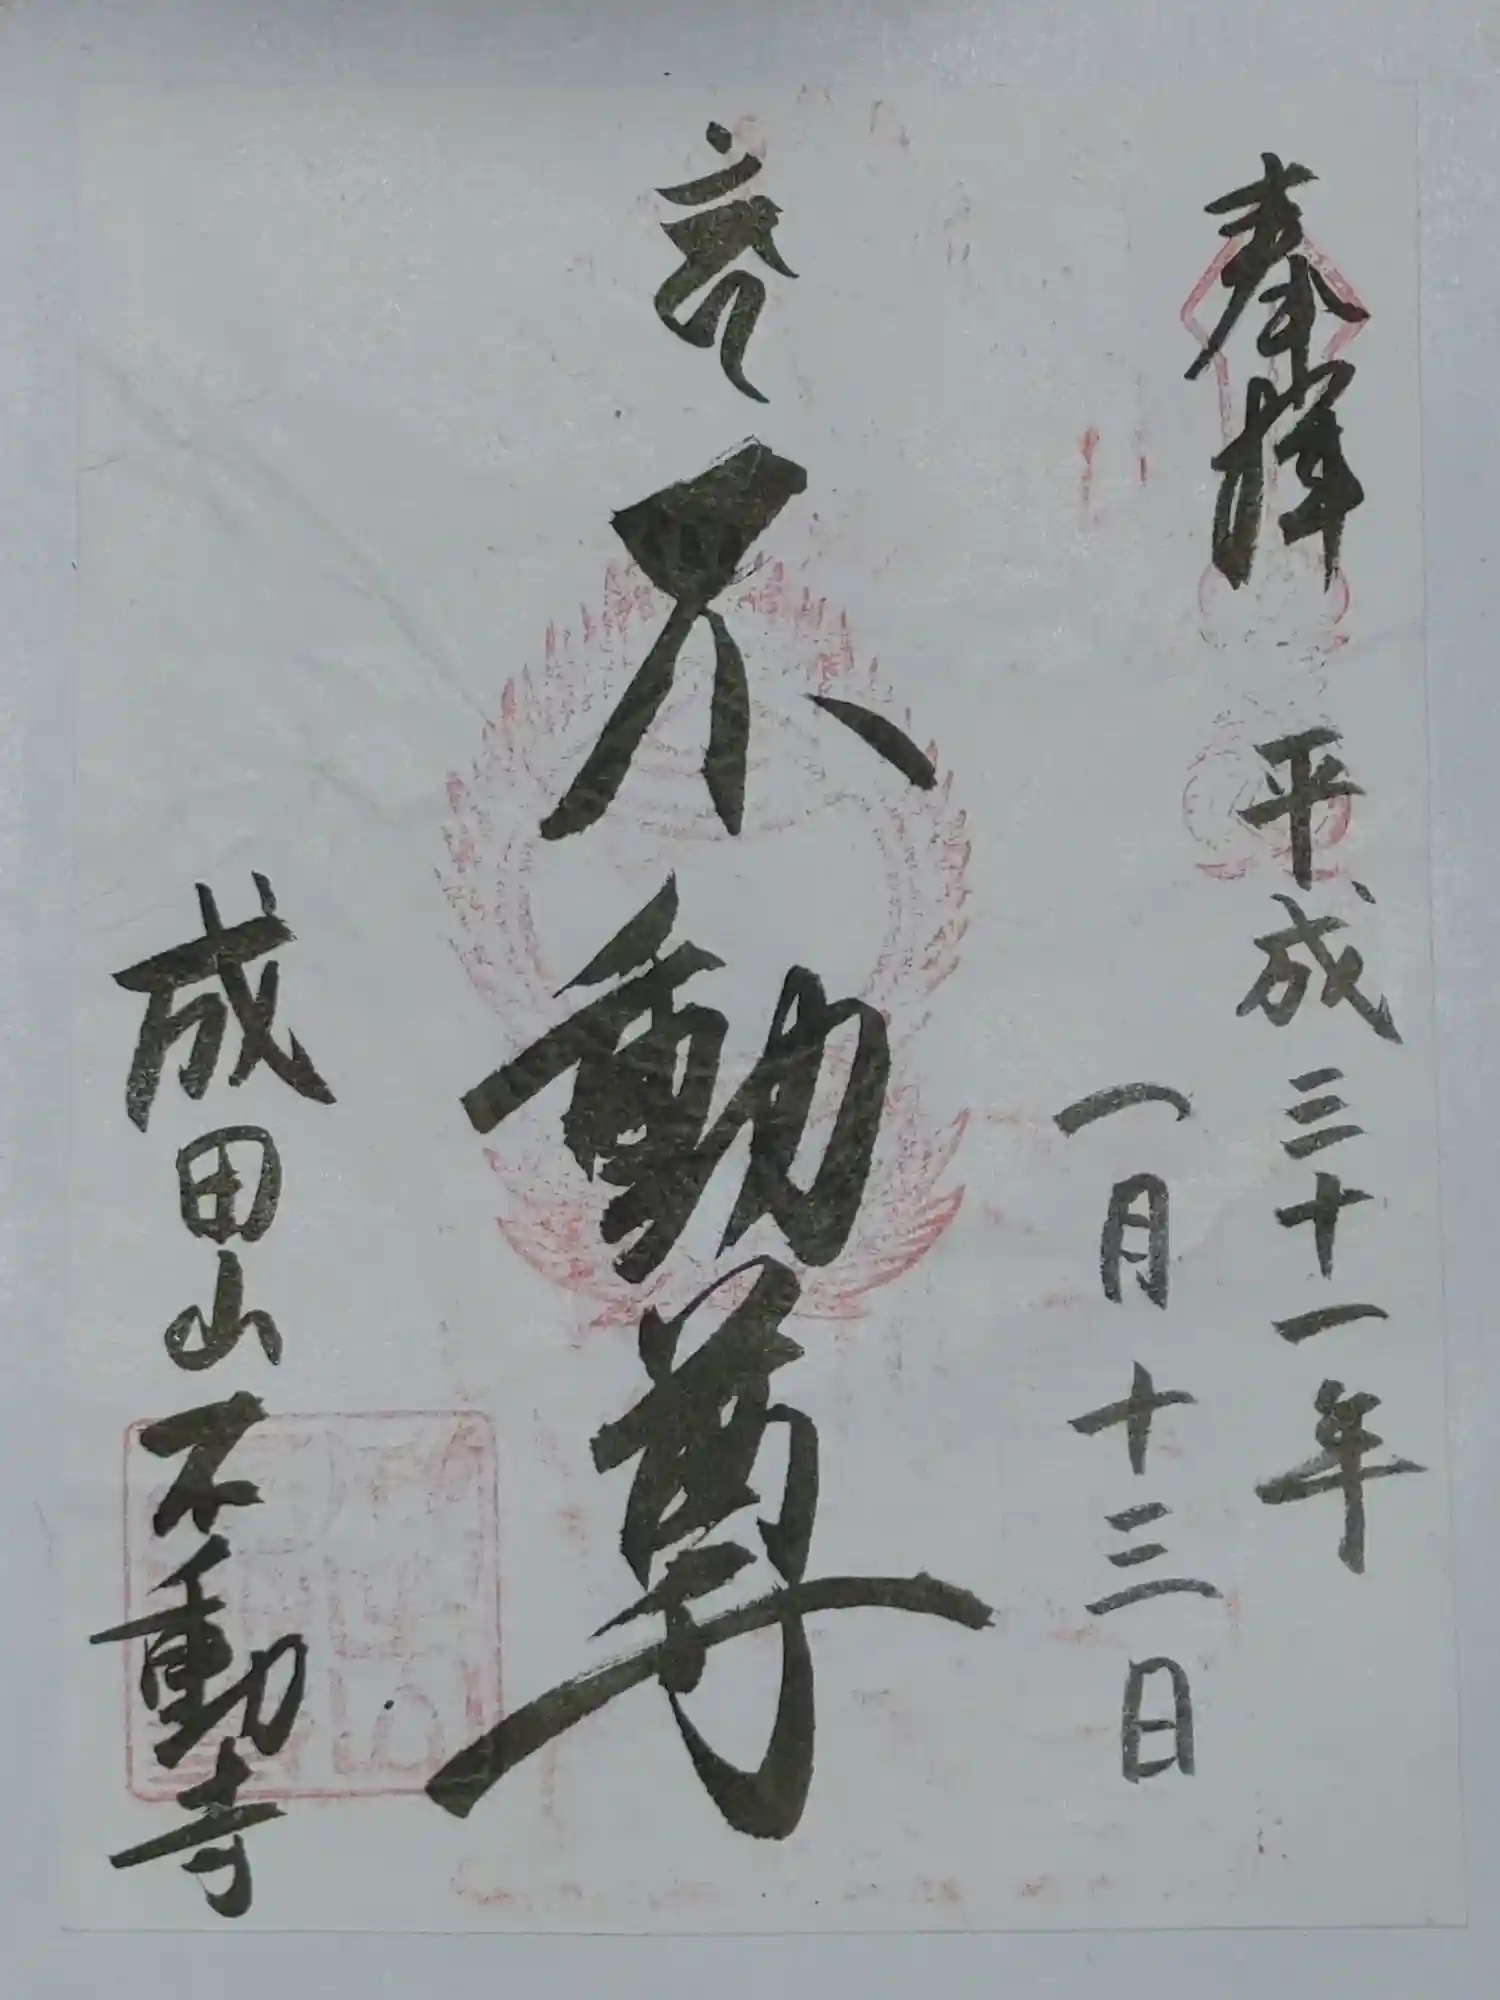 奉拝
平成三十一年
一月十三日
不動尊
成田山不動寺